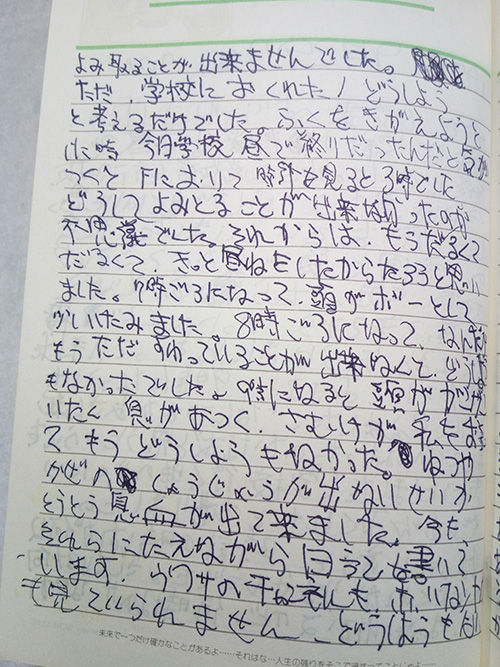 よみ取ることが出来ませんでした。
ただ、学校におくれた!どうしよう
と考えるだけでした。ふくをきがえようと
した時 今日学校昼で終りだったんだと気が
つくと下におりて時計を見ると3時でした
どうしてよみとることが出来なかったのか
不思議でした。それからは、もうだるくて
だるくて、きっと昼ねをしたからだろうと思い
ました。7時ごろになって、頭がボーとして
少しいたみました。8時ごろになって、なんだか
もうただすわっていることが出来なくて、どうしよう
もなかったでした。9時にねると頭ががんがん
いたく息があつく、さむけが私を
てもうどうしようもなかった。ねつや
かぜのしょうじょうが出ないせいか
とうとう鼻血が出て来ました。今も、
それらにたえながら日らんを書いて
います。
も見ていられません どうしようもない
未来で一つだけ確かなことがあるよ……それはな…人生の残りをそこで過すってことじゃよ